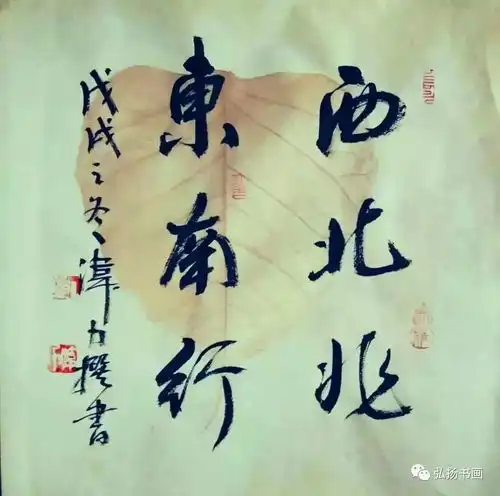 西北
東南行
戊戌之冬 力撰書
弘扬书画